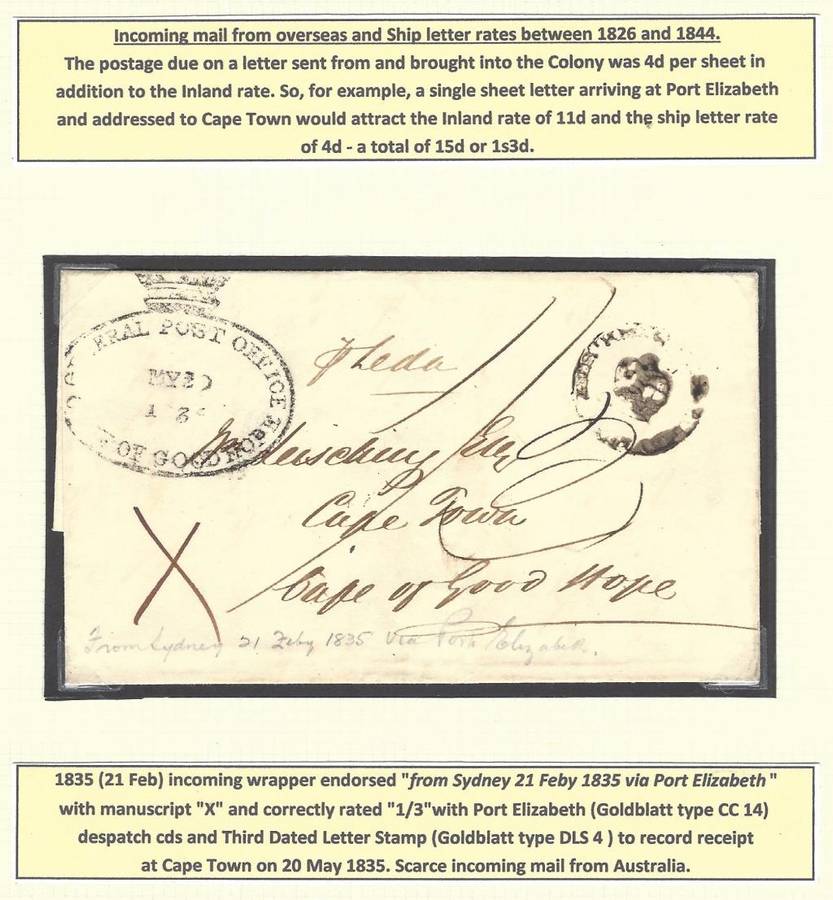 Incoming mail from overseas and Ship letter rates between 1826 and 1844.
The postage due on a letter sent from and brought into the Colony was 4d per sheet in
addition to the Inland rate. So, for example, a single sheet letter arriving at Port Elizabeth
and addressed to Cape Town would attract the Inland rate of 11d and the ship letter rate
of 4d - a total of 15d or 1s3d.
ERAL POST OFFICE
MY 20
OF GOOD HOPE
Esq
Cape Town
Cape of Good Hope
X
From Sydney 21 Feby 1835 via Port Elizabeth.
1835 (21 Feb) incoming wrapper endorsed "from Sydney 21 Feby 1835 via Port Elizabeth "
with manuscript "X" and correctly rated "1/3"with Port Elizabeth (Goldblatt type CC 14)
despatch cds and Third Dated Letter Stamp (Goldblatt type DLS 4 ) to record receipt
at Cape Town on 20 May 1835. Scarce incoming mail from Australia.